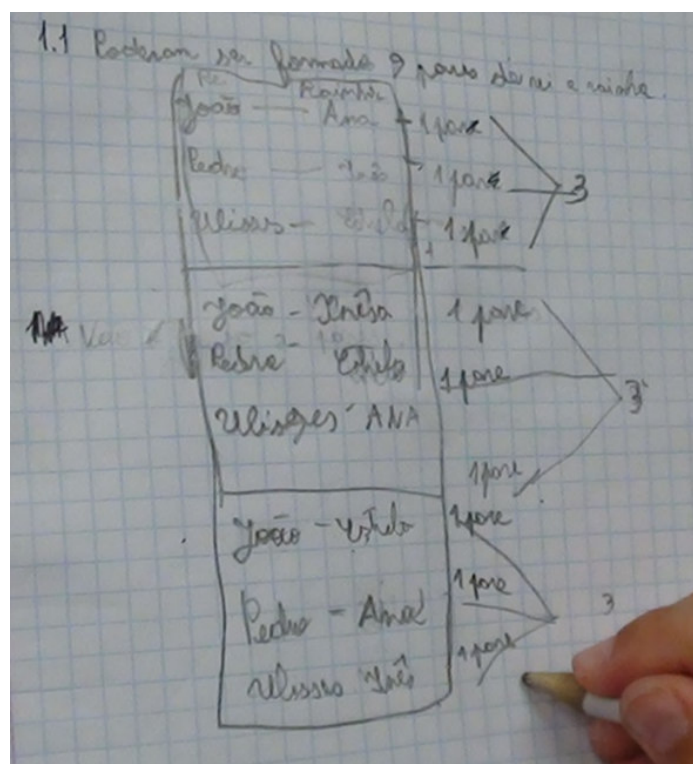 1.1 Poderam ser formado 9 pares de rei e rainha.
Rei Rainha
João - Ana - 1 pare
Pedro - Inês - 1 pare 3
Ulisses - Estela 1 pare
João - Inêsa 1 pare
Pedro - Estela 1 pare
Ulisses - ANA 3
1 pare
João - Estela 1 pare
Pedro - Ana 1 pare 3
Ulisses Inês 1 pare